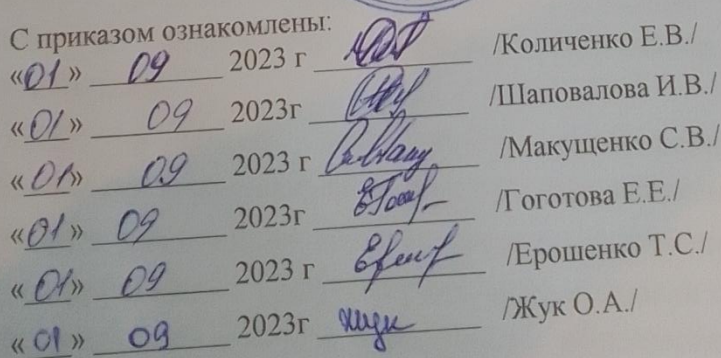 С приказом ознакомлены:
«01» 09 2023 г /Количенко Е.В./
«01» 09 2023г /Шаповалова И.В./
«01» 09 2023 г /Макущенко С.В./
«01» 09 2023г /Гоготова Е.Е./
«01» 09 2023 г /Ерошенко Т.С./
«01» 09 2023г Жук /Жук О.А./